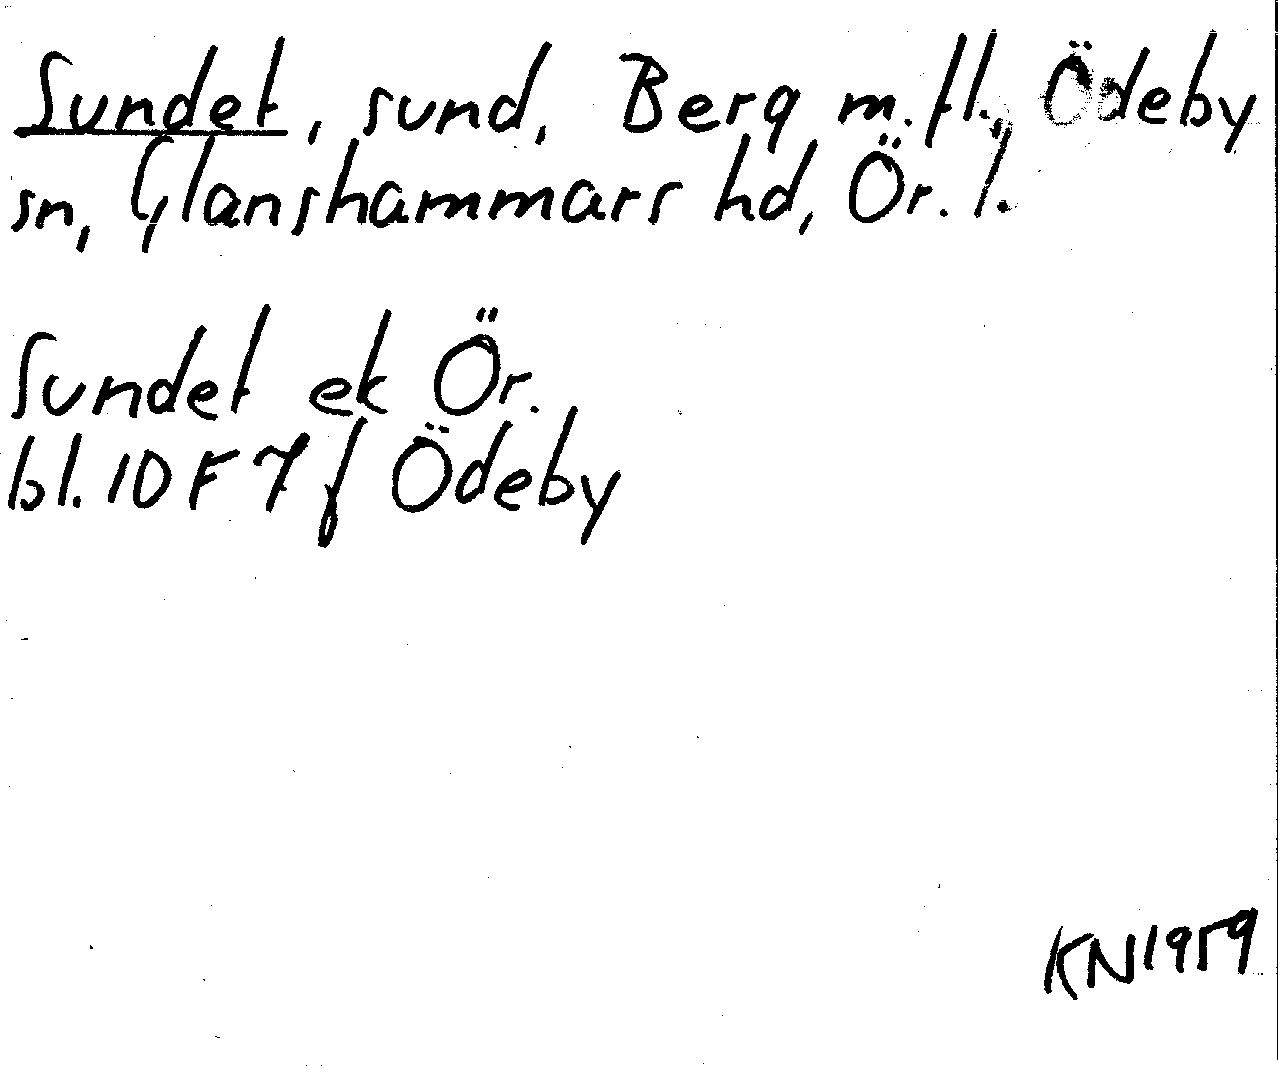 Sundet, sund, Berg m.fl., Ödeby
sn, Glanshammars hd, Ör. l.
Sundet ek Ör.
bl. 10 F 7 f Ödeby
KN 1959